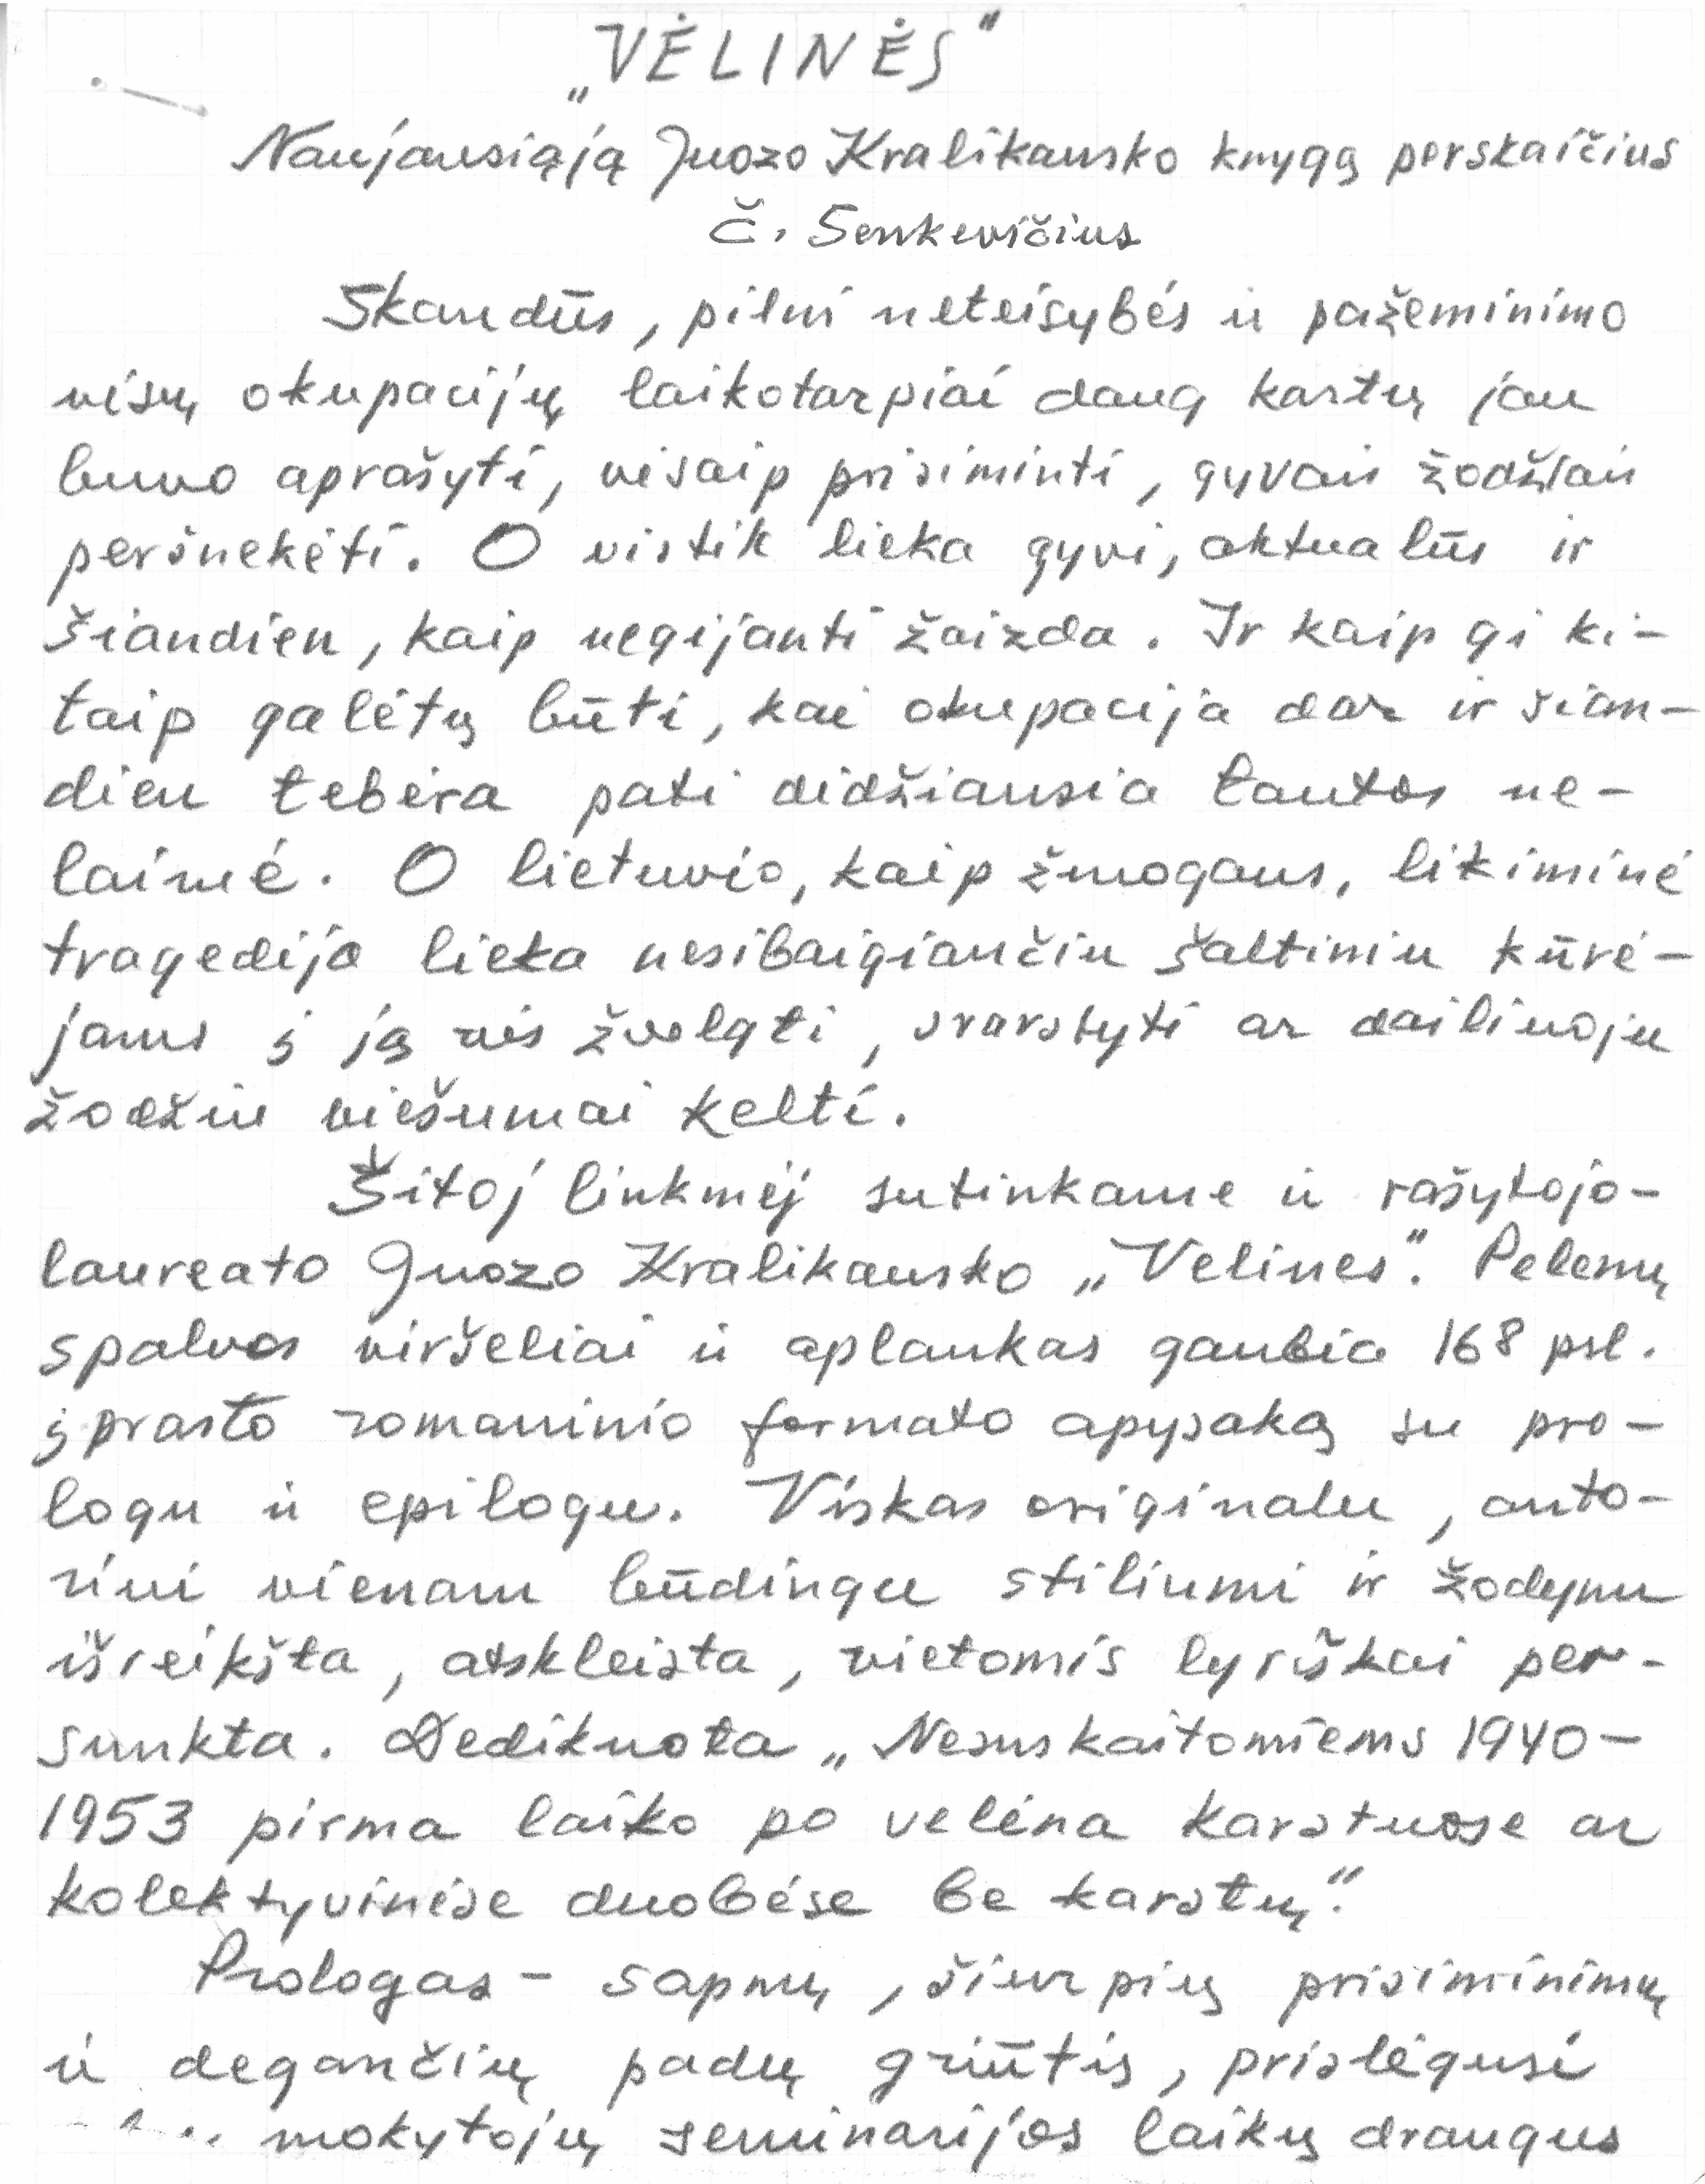 „VĖLINĖS“
Naujausiąją Juozo Kralikausko knygą perskaičius
Č. Senkevičius
Skaudūs, pilni neteisybės ir pažeminimo
visų okupacijų laikotarpiai daug kartų jau
buvo aprašyti, visaip prisiminti, gyvais žodžiais
peršnekėti. O vistik lieka gyvi, aktualūs ir
šiandien, kaip negijanti žaizda. Ir kaip gi ki-
taip galėtų būti, kai okupacija dar ir šian-
dien tebėra pati didžiausia tautos ne-
laimė. O lietuvio, kaip žmogaus, likiminė
tragedija lieka nesibaigiančiu šaltiniu kūrė-
jams į ją vis žvelgti, svarstyti ar dailiuoju
žodžiu viešumai kelti.
Šitoj linkmėj sutinkame ir rašytojo-
laureato Juozo Kralikausko „Velines“. Pelenų
spalvos viršeliai ir aplankas gaubia 168 psl.
įprasto romaninio formato apysaką su pro-
logu ir epilogu. Viskas originalu, auto-
riui vienam būdingu stiliumi ir žodynu
išreikšta, atskleista, vietomis lyriškai per-
sunkta. Dedikuota „Nesuskaitomiems 1940–
1953 pirma laiko po velėna karstuose ar
kolektyvinėse duobėse be karstų“.
Prologas – sapnų, šiurpių prisiminimų
ir degančių padų griūtis, prislėgusi
mokytojų seminarijos laikų draugus